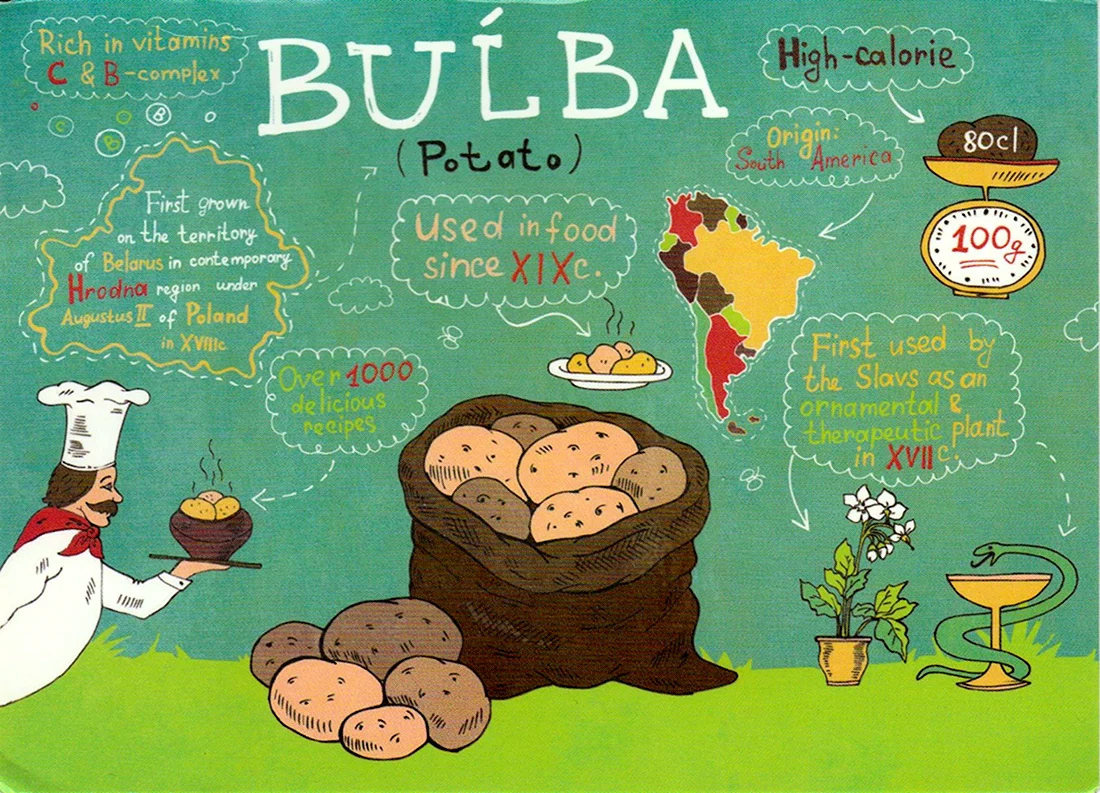 Rich in vitamins
C & B-complex
C
B
B
BUĹBA
(Potato)
High-calorie
80cl
100g
Origin:
South America
First grown
on the territory
of Belarus in contemporary
Hrodna region under
Augustus II of Poland
in XVIIIc
Used in food
since XIXc.
Over 1000
delicious
recipes
First used by
the Slavs as an
ornamental &
therapeutic plant
in XVIIc.